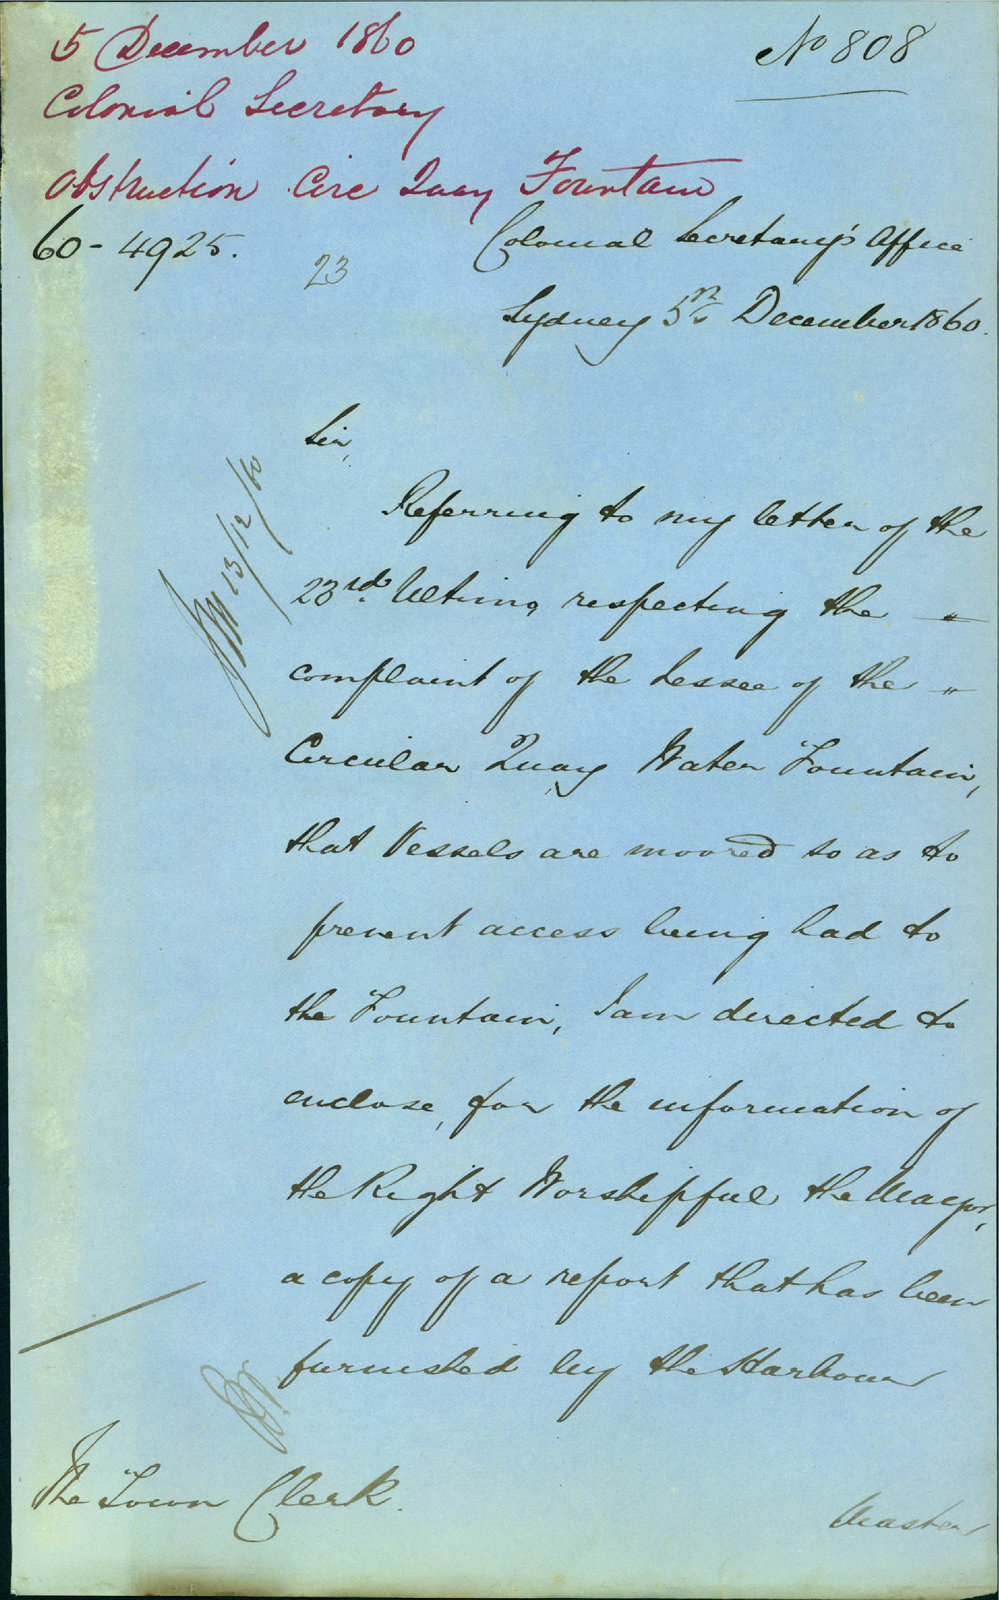 5 December 1860
No 808
Colonial Secretary
Obstruction Circ Quay Fountain
60-4925.
23
Colonial Secretary's Office
Sydney 5th December 1860.
Sir,
13/12/60
Referring to my letter of the
23rd. Ultimo, respecting the "
complaint of the Lessee of the "
Circular Quay Water Fountain,
that Vessels are moored so as to
prevent access being had to
the Fountain, I am directed to
enclose, for the information of
the Right Worshipful the Mayor,
a copy of a report that has been
furnished by the Harbour
The Town Clerk.
Master